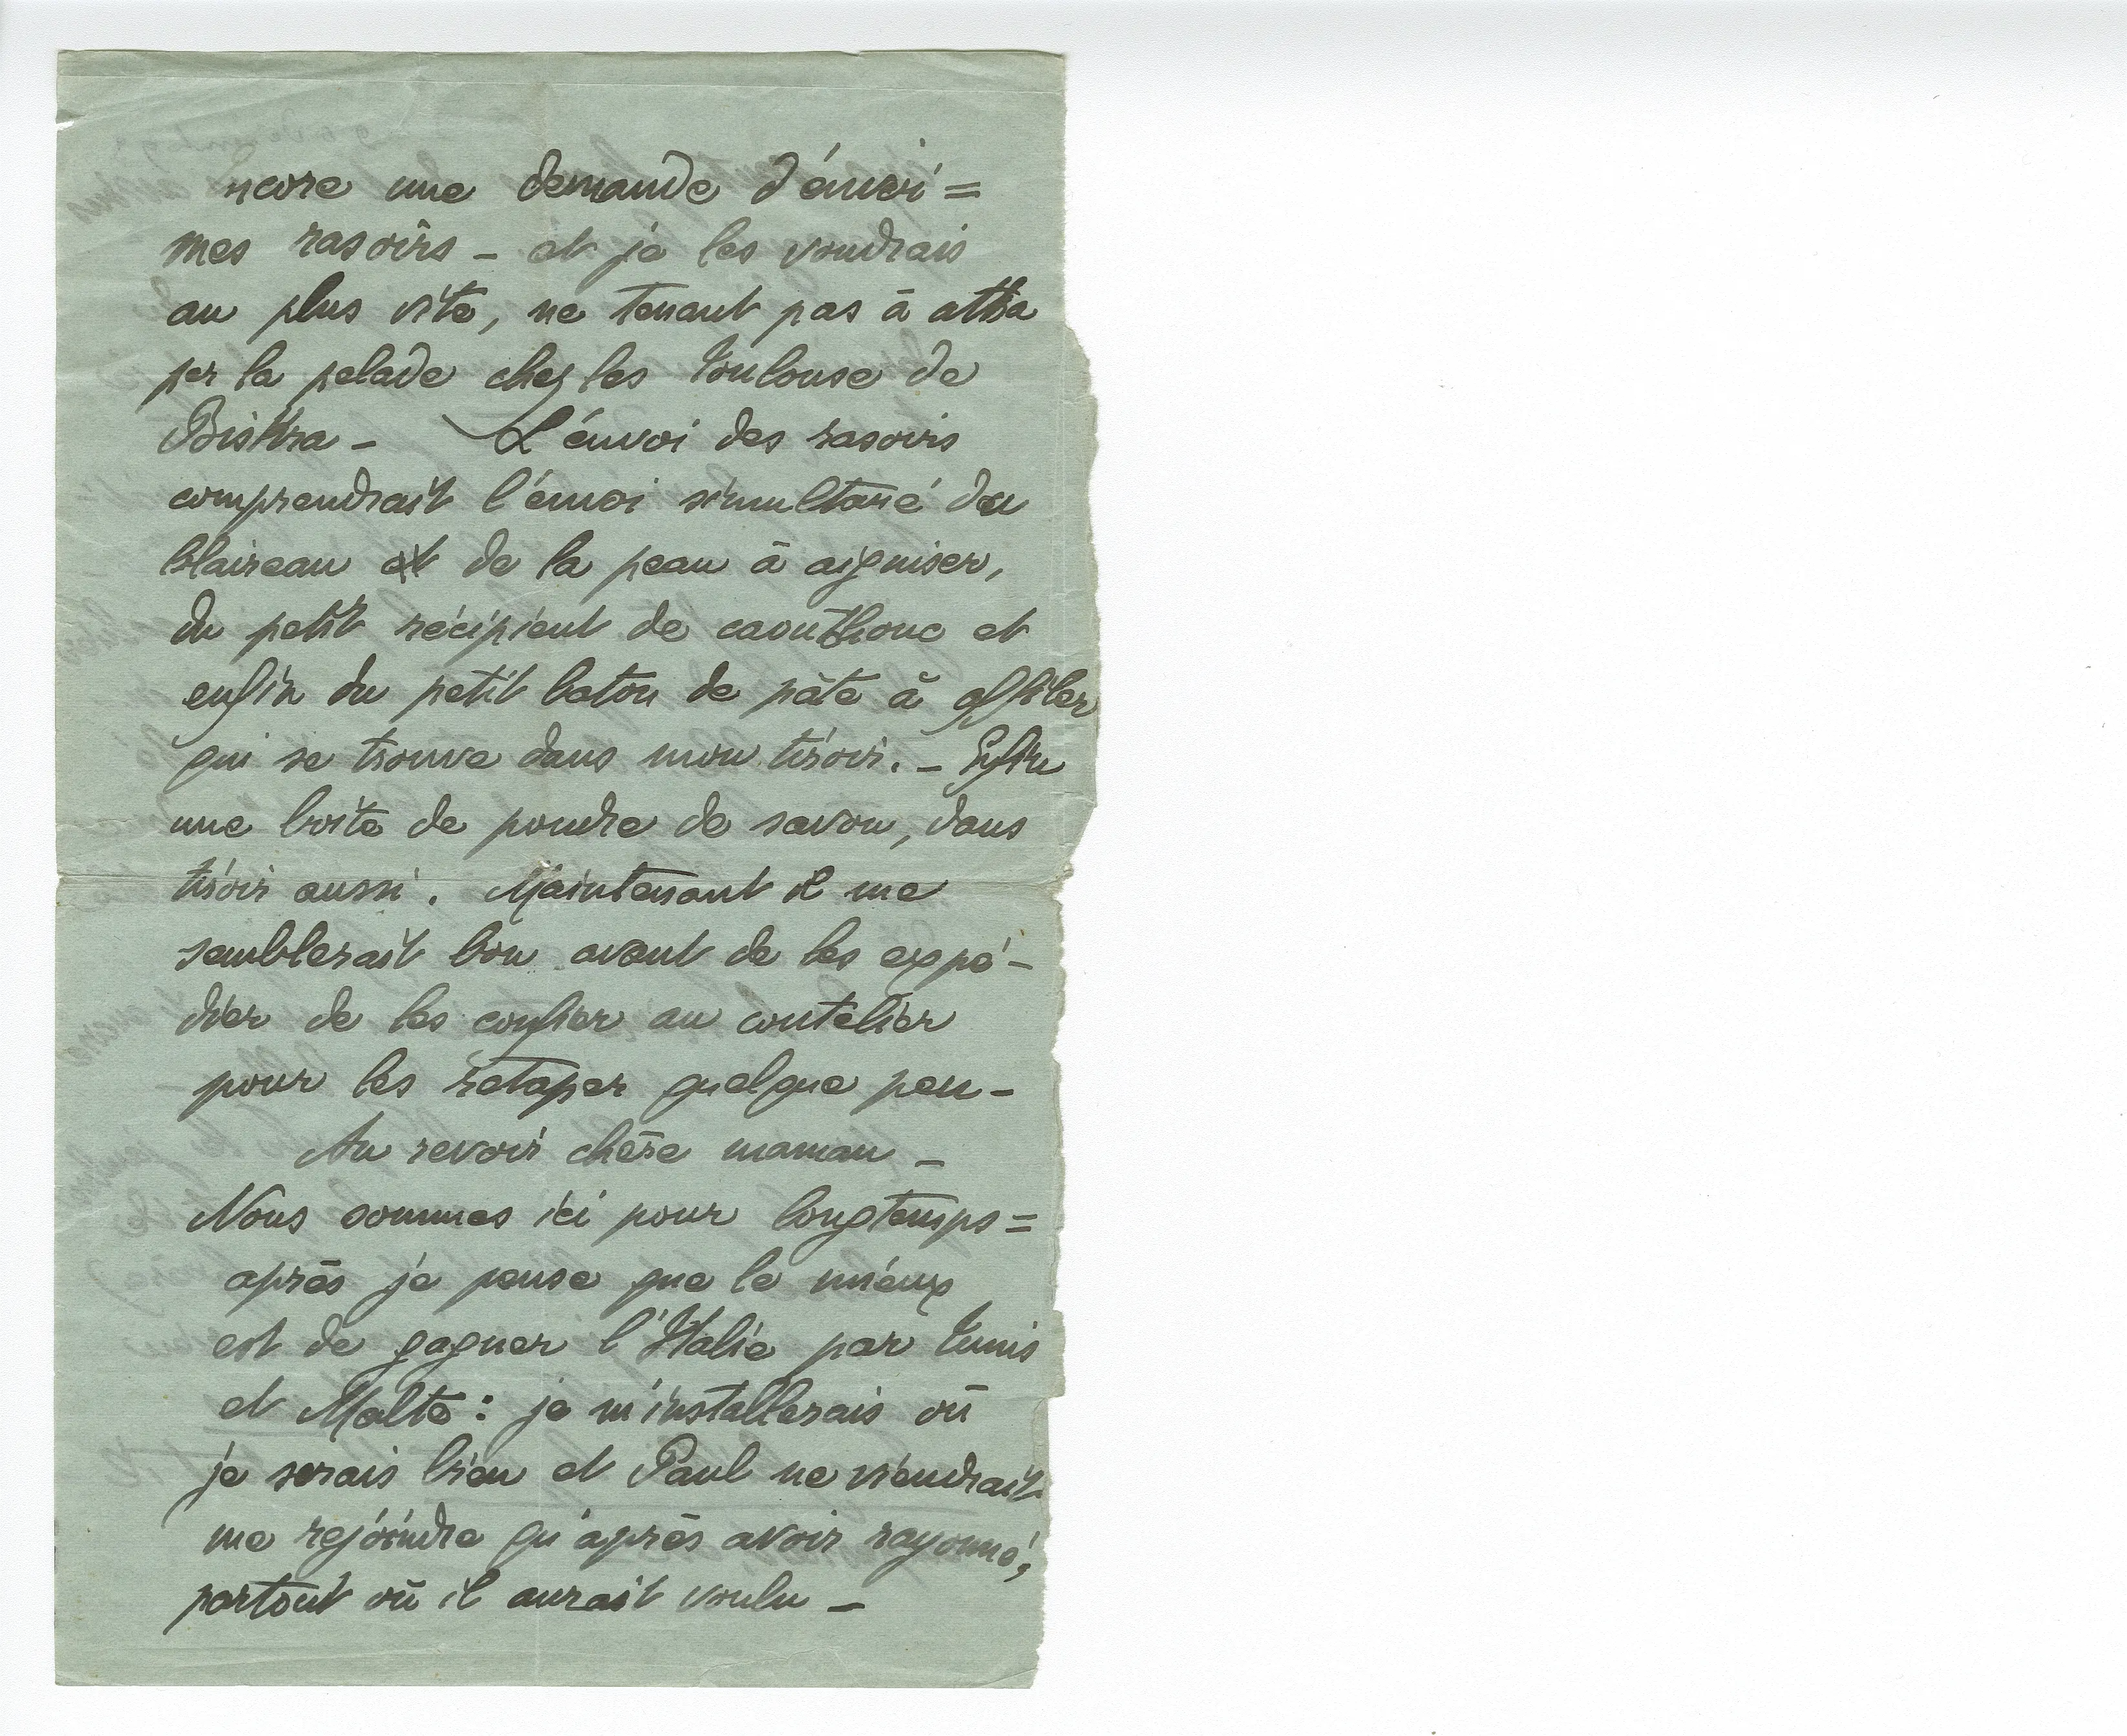 ncore une demande d'envoi =
mes rasoirs – et je les voudrais
au plus vite, ne tenant pas à attra
per la pelade chez les Toulouse de
Biskra – L'envoi des rasoirs
comprendrait l'envoi simultané du
blaireau et de la peau à aiguiser,
du petit récipient de caoutchouc et
enfin du petit baton de pâte à affiler
qui se trouve dans mon tiroir. – Enfin
une boite de poudre de savon, dans
tiroir aussi. Maintenant il me
semblerait bon avant de les expé-
dier de les confier au coutelier
pour les retaper quelque peu –
Au revoir chère maman –
Nous sommes ici pour longtemps =
après je pense que le mieux
est de gagner l'Italie par Tunis
et Malte : je m'installerais où
je serais bien et Paul ne viendrait
me rejoindre qu'après avoir rayonné,
partout où il aurait voulu –